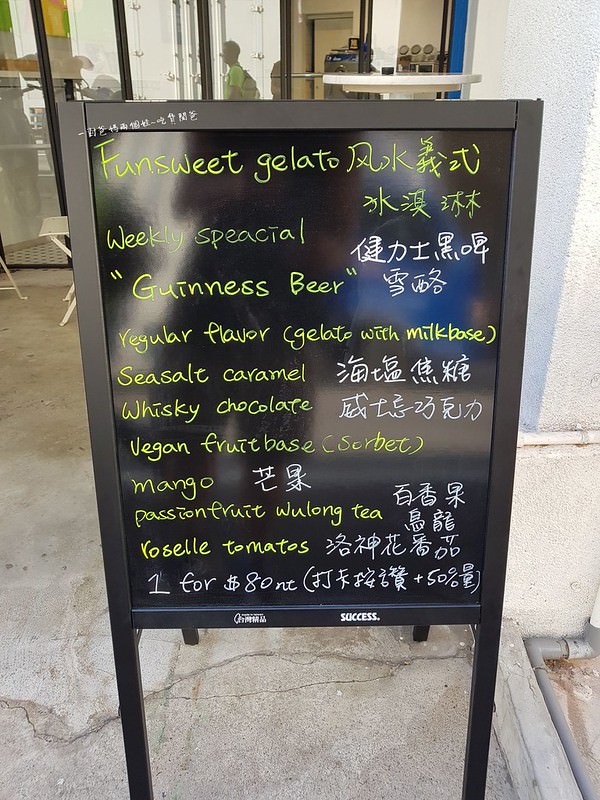 一對爸媽兩個娃~吃貨開爸
Funsweet gelato 风水義式
冰淇淋
Weekly speacial
健力士黑啤
"Guinness Beer" 雪酪
regular flavor (gelato with milkbase)
Seasalt caramel 海塩焦糖
Whisky chocolate 威士忌巧克力
Vegan fruitbase (Sorbet)
mango 芒果
百香果
passionfruit wulong tea
烏龍
roselle tomatos 洛神花番茄
1 for $80nt (打卡按讚+50%量)
台灣精品
SUCCESS.